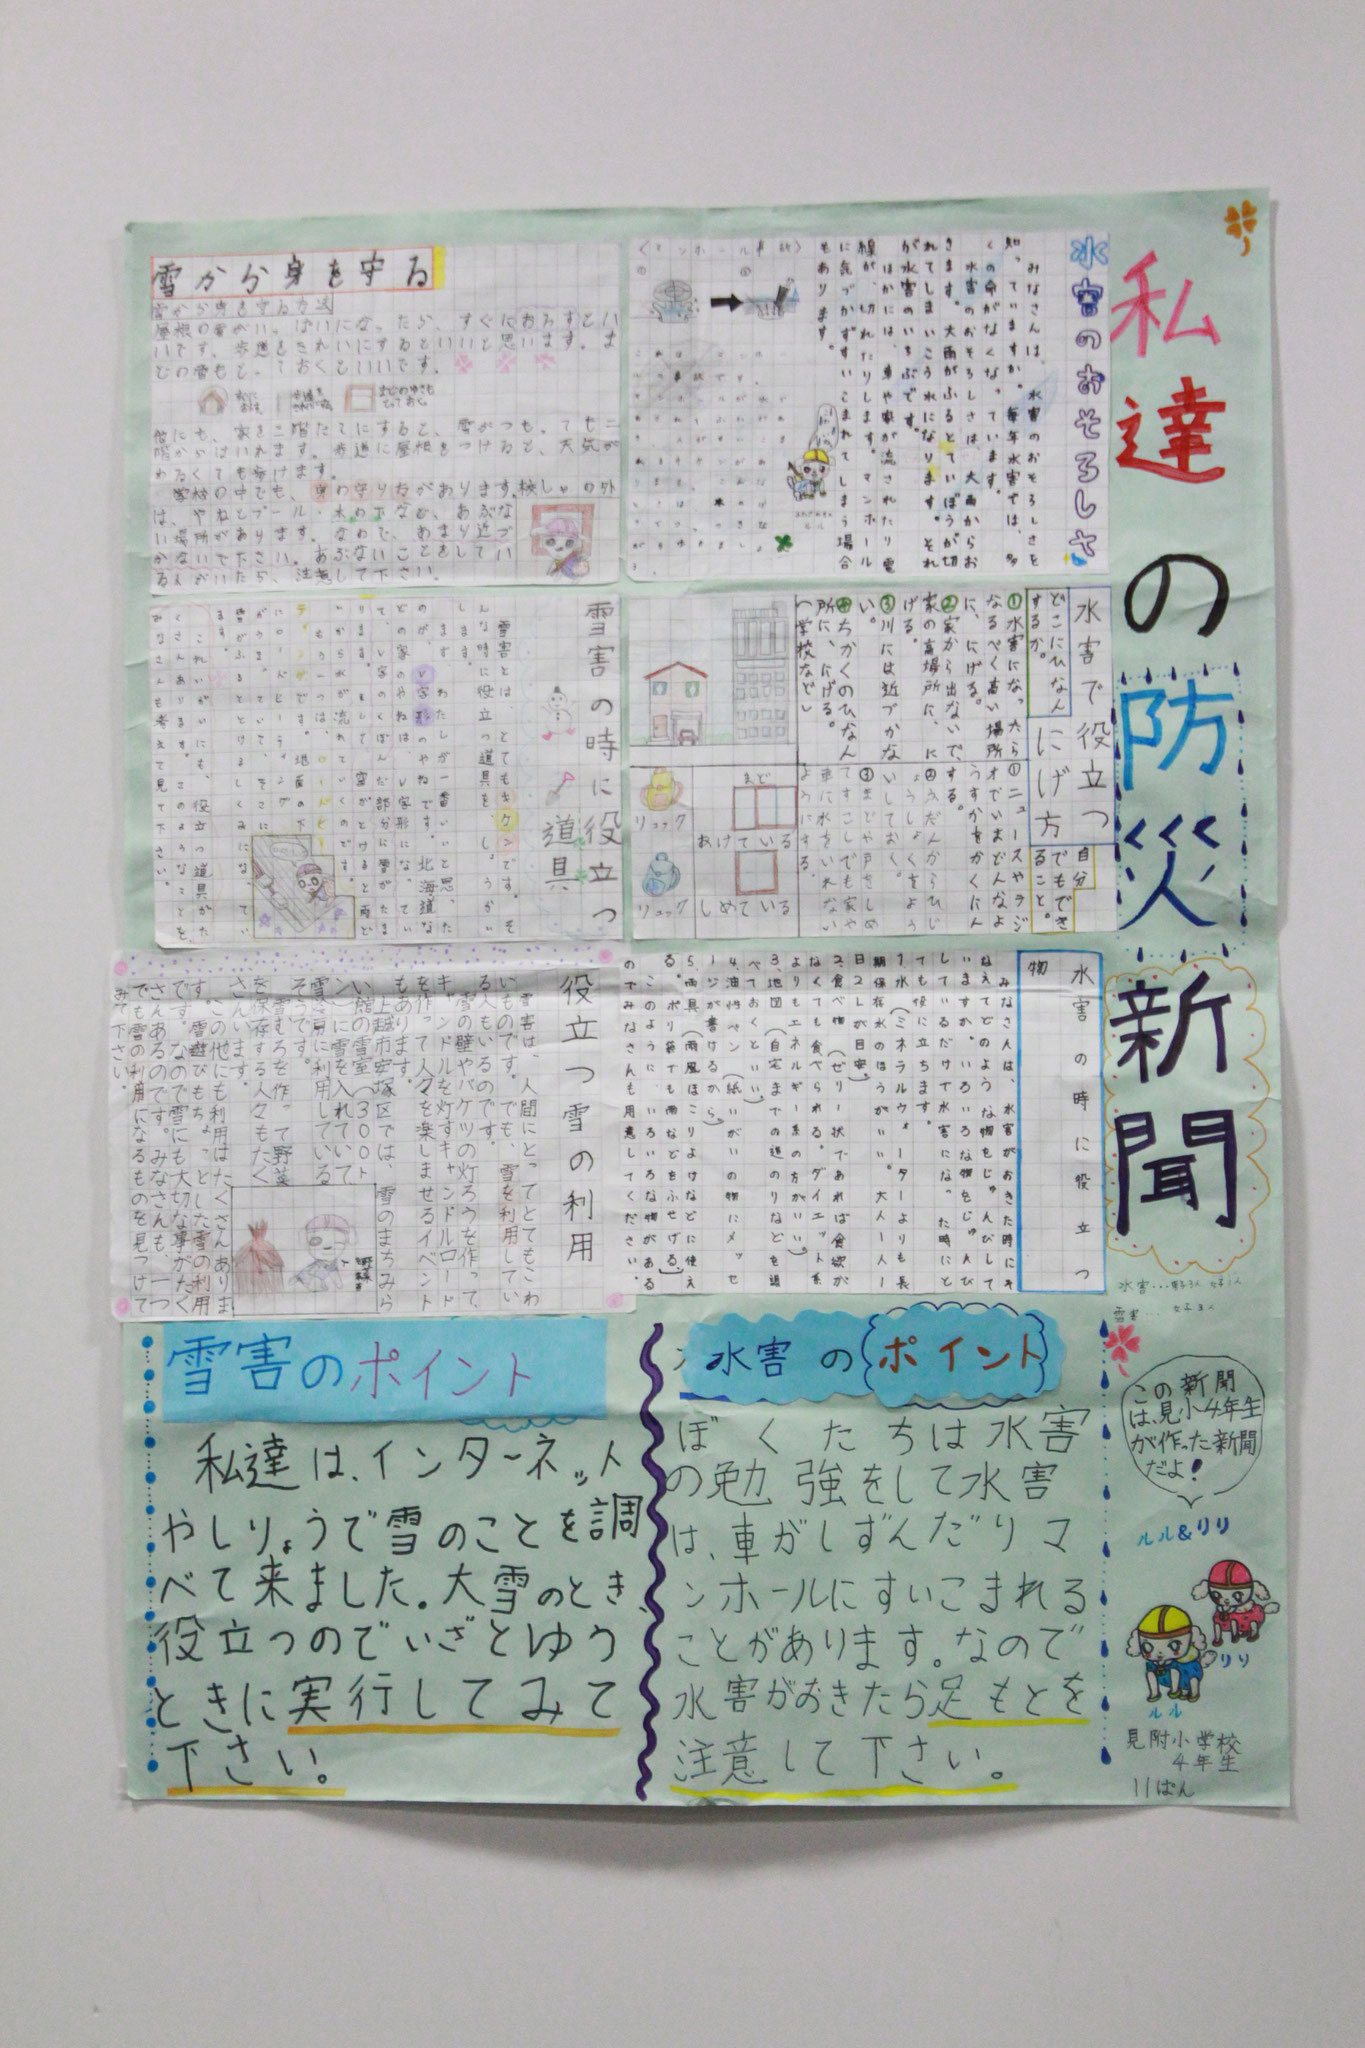 私達の防災新聞
水害…男子3人 女子1人
雪害…女子3人
この新聞
は、見小4年生
が作った新聞
だよ!
ルル&リリ
リリ
ルル
見附小学校
4年生
11ぱん
水害のおそろしさ
みなさんは、水害のおそろしさを
知っていますか。毎年水害では、多
くの命がなくなっています。
水害のおそろしさは、大雨からお
きます。大雨がふるとていぼうが切
れてしまいこう水になります。それ
が水害のいちぶです。
ほかには、車や家が流されたり電
線が、切れたりします。マンホール
に気づかずすいこまれてしまう場合
もあります。
水害で役立つ
にげ方
どこにひなん
するか。
①水害になったら
なるべく高い場所
に、にげる。
②家から出ないで、
家の高場所に、に
げる。
③川には近づかな
い。
④ちかくのひなん
所に、にげる。
(学校など)
自分
でもでき
ること。
①ニュースやラジ
オでいまどんなよ
うすかをかくにん
する。
②ふだんからひじ
ょうしょくをよう
いしておく。
③まどや戸をしめ
てすこしでも家や
車に水をいれない
ようにする。
まど
あけている
しめている
リュック
リュック
水害の時に役立つ
物
みなさんは、水害がおきた時にそ
なえてどのような物をじゅんびして
いますか。いろいろな物をじゅんび
しているだけで水害になった時にと
ても役に立ちます。
1.水(ミネラルウォーターよりも長
期保存水のほうがいい。大人一人一
日2Lが目安)
2.食べ物(ゼリー状であれば食欲が
なくても食べられる。ダイエット系
よりもエネルギー系の方がいい)
3.地図(自宅までの道のりなどを調
べておくといい)
4.油性ペン(紙いがいの物にメッセ
ージが書けるから)
5.雨具(雨風はこりよけなどに使え
る。ポリ袋でも雨などをふせげる)
このように、いろいろな物がある
のでみなさんも用意してください。
雪から身を守る
雪から身を守る方法
屋根の雪がいっぱいになったら、すぐにおろすとい
いです。歩道をきれいにするといいと思います。ま
どの雪もとっておくといいです。
他にも、家を二階だてにすると、雪がつもっても二
階からはいれます。歩道に屋根をつけると、天気が
わるくても歩けます。
学校の中でも、身の守り方があります。校しゃの外
は、やねとプール・木の下など、あぶな
い場所があります。なので、あまり近づ
かないで下さい。あぶないことをしてい
る人がいたら、注意して下さい。
雪害の時に役立つ
道具
雪害とは、とてもキケンです。そ
んな時に役立つ道具を、しょうかい
します。
まず、わたしが一番いいと思った
のが、V字形のやねです。北海道な
どの家のやねは、V字形になってい
て、V字のくぼんだ部分に雪がたま
ります。そして、雪がとけると雨ど
いから水が流れていくのです。
もう一つは、ロードヒー
ティングです。地面の下
にロードヒーティング
がうまっていて、そこに
雪がふるととけるしくみになってい
ます。
これいがいにも、役立つ道具がた
くさんあります。このようなことを
みなさんも考えて見て下さい。
役立つ雪の利用
雪害は、人間にとってとてもこわ
いものです。でも、雪を利用してい
る人もいるのです。
雪の壁やバケツの灯ろうを作って、
キャンドルを灯す、キャンドルロード
を作って人々を楽しませるイベント
もあります。
上越市安塚区では、雪のまちみら
い館の雪室(300トン)
に雪を入れていて
雪を夏に利用している
そうです。
雪むろを作って野菜
を保存する人々もたく
さんいます。
この他にも利用はたくさんありま
す。雪遊びもちょっとした雪の利用
です。なので雪にも大切な事がたく
さんあるのです。みなさんも、一つ
でも雪の利用になるものを見つけて
みて下さい。
水害のポイント
ぼくたちは水害
の勉強をして水害
は、車がしずんだりマ
ンホールにすいこまれる
ことがあります。なので
水害がおきたら足もとを
注意して下さい。
雪害のポイント
私達は、インターネット
やしりょうで雪のことを調
べて来ました。大雪のとき、
役立つのでいざとゆう
ときに実行してみて
下さい。